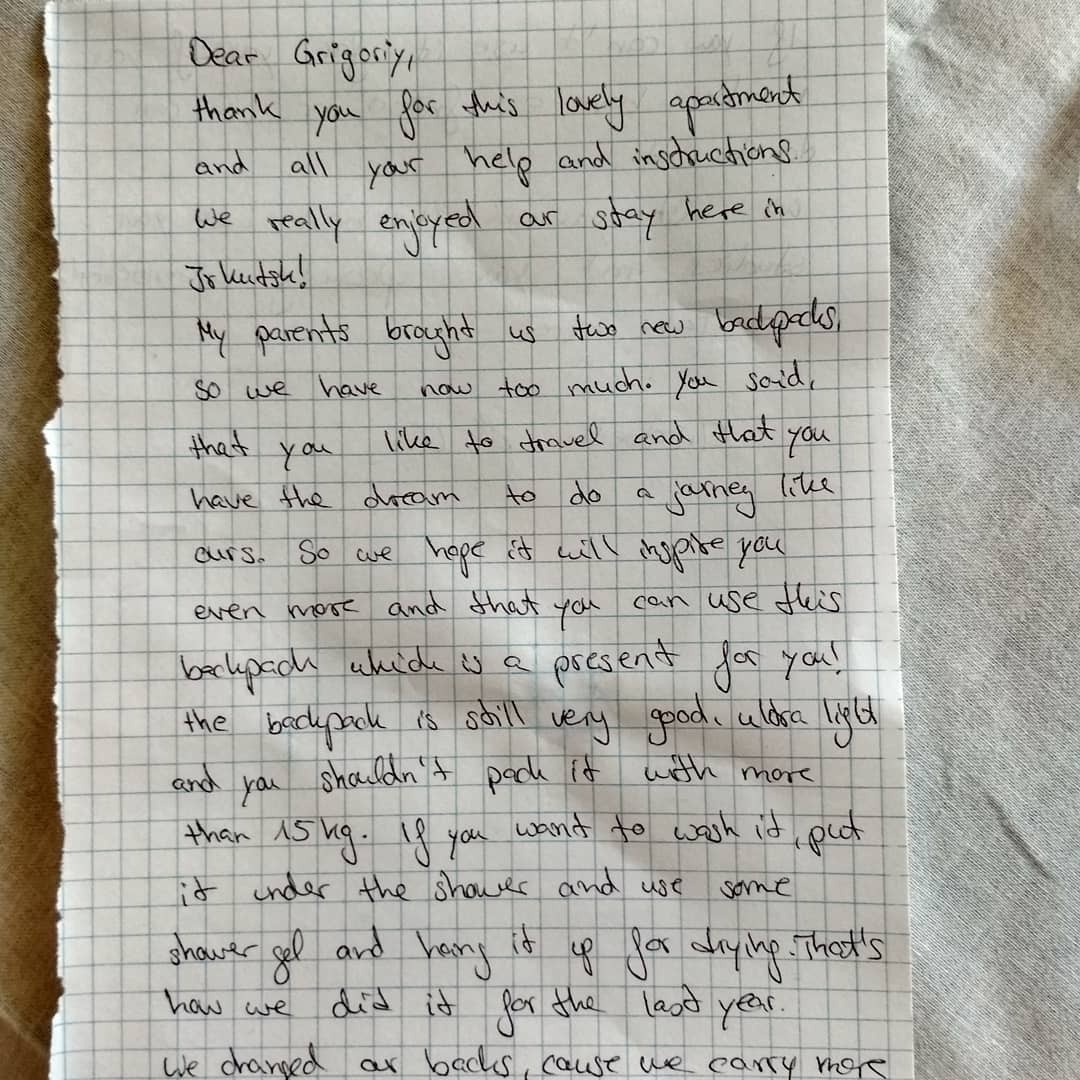 Dear Grigoriy,
thank you for this lovely apartment
and all your help and instructions.
We really enjoyed our stay here in
Irkutsk!
My parents brought us two new backpacks,
so we have now too much. You said,
that you like to travel and that you
have the dream to do a journey like
ours. So we hope it will inspire you
even more and that you can use this
backpack which is a present for you!
the backpack is still very good, ultra light
and you shouldn't pack it with more
than 15 kg. If you want to wash it, put
it under the shower and use some
shower gel and hang it up for drying. That's
how we did it for the last year.
We changed our backs, cause we carry more